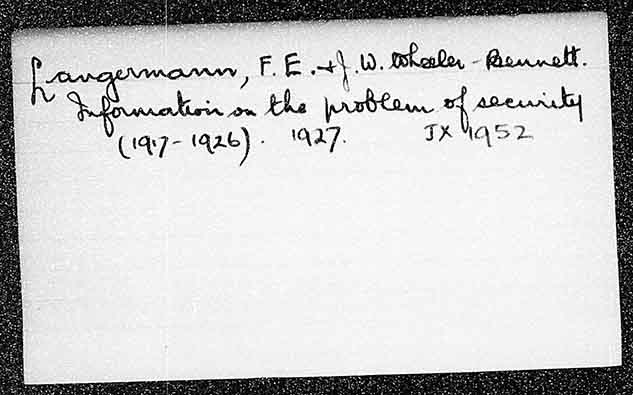 Langermann, F. E. + J. W. Wheeler-Bennett.
Information on the problem of security
(1917-1926). 1927. JX 1952